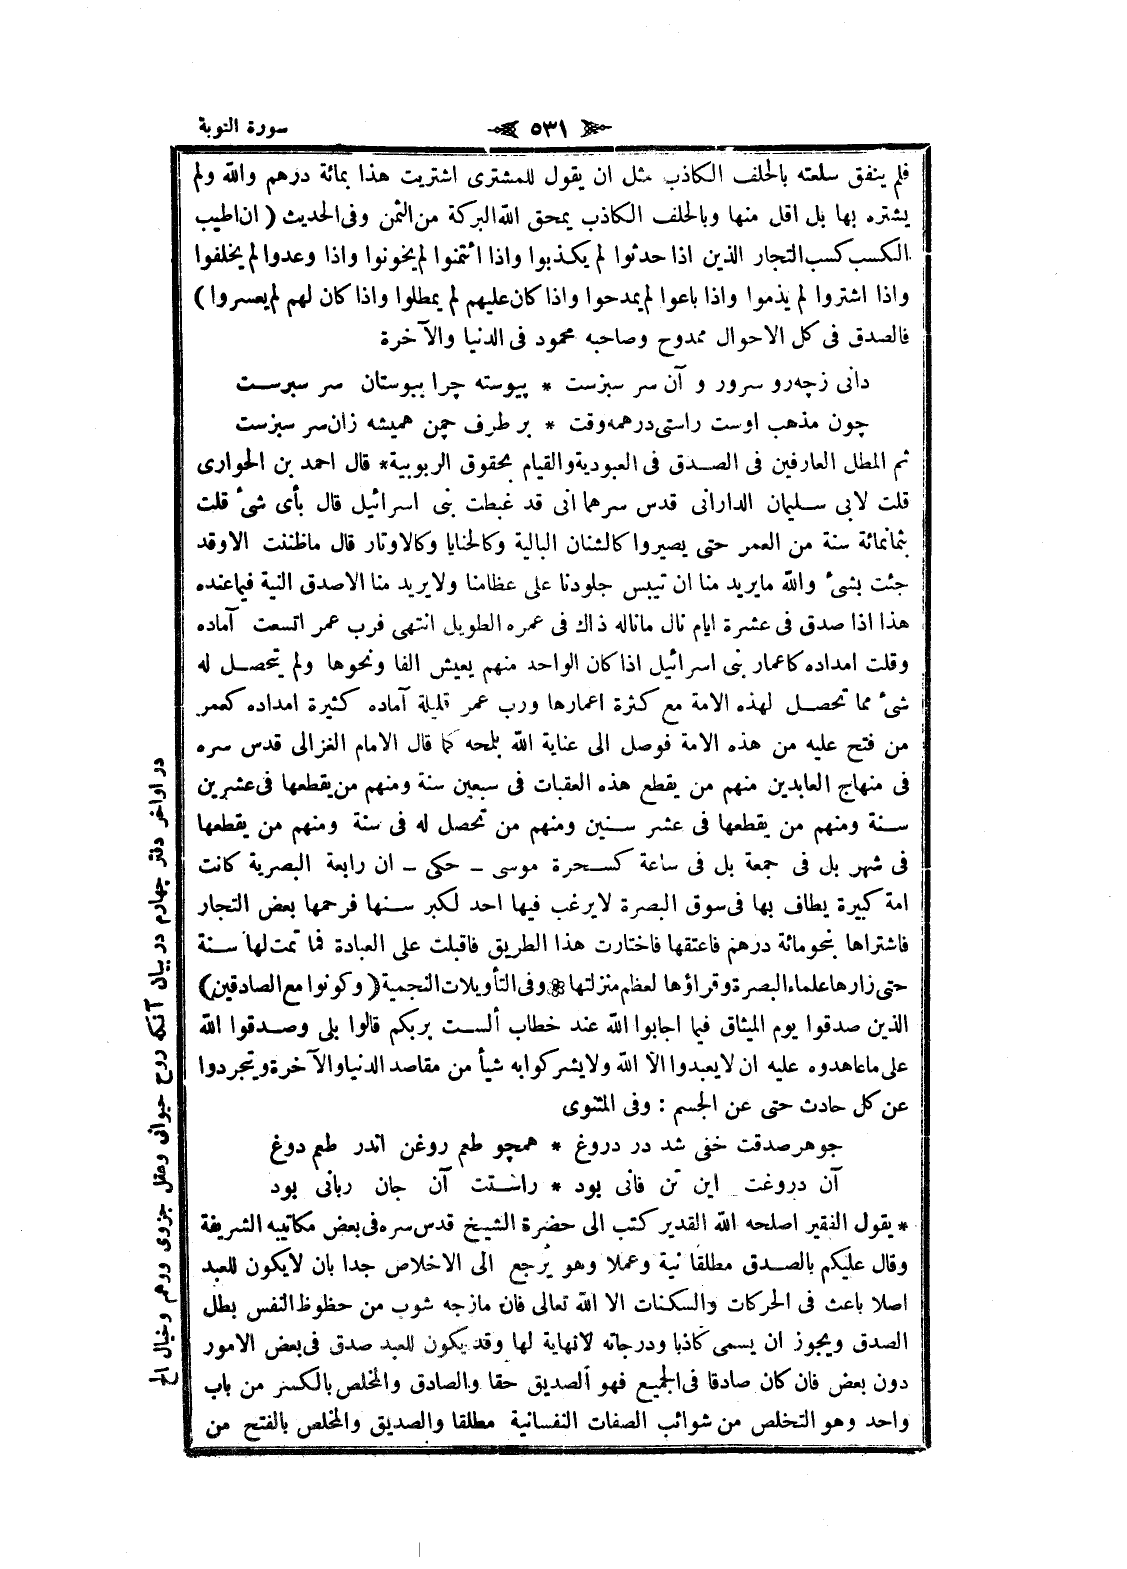 سورة التوبة
٥٣١
فلم ينفق سلعته بالحلف الكاذب مثل ان يقول للمشترى اشتريت هذا بمائة درهم والله ولم
يشتره بها بل اقل منها وبالحلف الكاذب يمحق الله البركة من الثمن وفى الحديث ( ان اطيب
الكسب كسب التجار الذين اذا حدثوا لم يكذبوا واذا ائتمنوا لم يخونوا واذا وعدوا لم يخلفوا
واذا اشتروا لم يذموا واذا باعوا لم يمدحوا واذا كان عليهم لم يمطلوا واذا كان لهم لم يعسروا )
فالصدق فى كل الاحوال ممدوح وصاحبه محمود فى الدنيا والآخرة
دانى زچه رو سرور و آن سر سبزست * پيوسته چرا ببوستان سر سبزست
چون مذهب اوست راستى درهمه وقت * بر طرف چمن هميشه زان سر سبزست
ثم المطل العارفين فى الصدق فى العبودية والقيام بحقوق الربوبية * قال احمد بن الحوارى
قلت لابى سليمان الدارانى قدس سرهما انى قد غبطت بنى اسرائيل قال بأى شىء قلت
بثمانمائة سنة من العمر حتى يصيروا كالشنان البالية وكالحنايا وكالاوتار قال ماظننت الاوقد
جئت بشىء والله مايريد منا ان تيبس جلودنا على عظامنا ولايريد منا الاصدق النية فيماعنده
هذا اذا صدق فى عشرة ايام نال ماناله ذاك فى عمره الطويل انتهى فرب عمر اتسعت آماده
وقلت امداده كاعمار بنى اسرائيل اذا كان الواحد منهم يعيش الفا ونحوها ولم يتحصل له
شىء مما تحصل لهذه الامة مع كثرة اعمارها ورب عمر قليلة آماده كثيرة امداده كعمر
من فتح عليه من هذه الامة فوصل الى عناية الله بلمحة كما قال الامام الغزالى قدس سره
فى منهاج العابدين منهم من يقطع هذه العقبات فى سبعين سنة ومنهم من يقطعها فى عشرين
سنة ومنهم من يقطعها فى عشر سنين ومنهم من تحصل له فى سنة ومنهم من يقطعها
فى شهر بل فى جمعة بل فى ساعة كسحرة موسى ـ حكى ـ ان رابعة البصرية كانت
امة كبيرة يطاف بها فى سوق البصرة لايرغب فيها احد لكبر سنها فرحمها بعض التجار
فاشتراها بنحو مائة درهم فاعتقها فاختارت هذا الطريق فاقبلت على العبادة فما تمت لها سنة
حتى زارها علماء البصرة وقراؤها لعظم منزلتها * وفى التأويلات النجمية ( وكونوا مع الصادقين )
الذين صدقوا يوم الميثاق فيما اجابوا الله عند خطاب ألست بربكم قالوا بلى وصدقوا الله
على ماعاهدوه عليه ان لايعبدوا الا الله ولايشركوا به شيأ من مقاصد الدنيا والآخرة ويتجردوا
عن كل حادث حتى عن الجسم : وفى المثنوى
جوهر صدقت خفى شد در دروغ * همچو طعم روغن اندر طعم دوغ
آن دروغت اين تن فانى بود * راستت آن جان ربانى بود
* يقول الفقير اصلحه الله القدير كتب الى حضرة الشيخ قدس سره فى بعض مكاتيبه الشريفة
وقال عليكم بالصدق مطلقا نية وعملا وهو يرجع الى الاخلاص جدا بان لايكون للعبد
اصلا باعث فى الحركات والسكنات الا الله تعالى فان مازجه شوب من حظوظ النفس بطل
الصدق ويجوز ان يسمى كاذبا ودرجاته لانهاية لها وقد يكون للعبد صدق فى بعض الامور
دون بعض فان كان صادقا فى الجميع فهو الصديق حقا والصادق والمخلص بالكسر من باب
واحد وهو التخلص من شوائب الصفات النفسانية مطلقا والصديق والمخلص بالفتح من
در اواخر دفتر چهارم در بيان آنكه روح حيوانى وعقل جزوى ووهم وخيال الخ